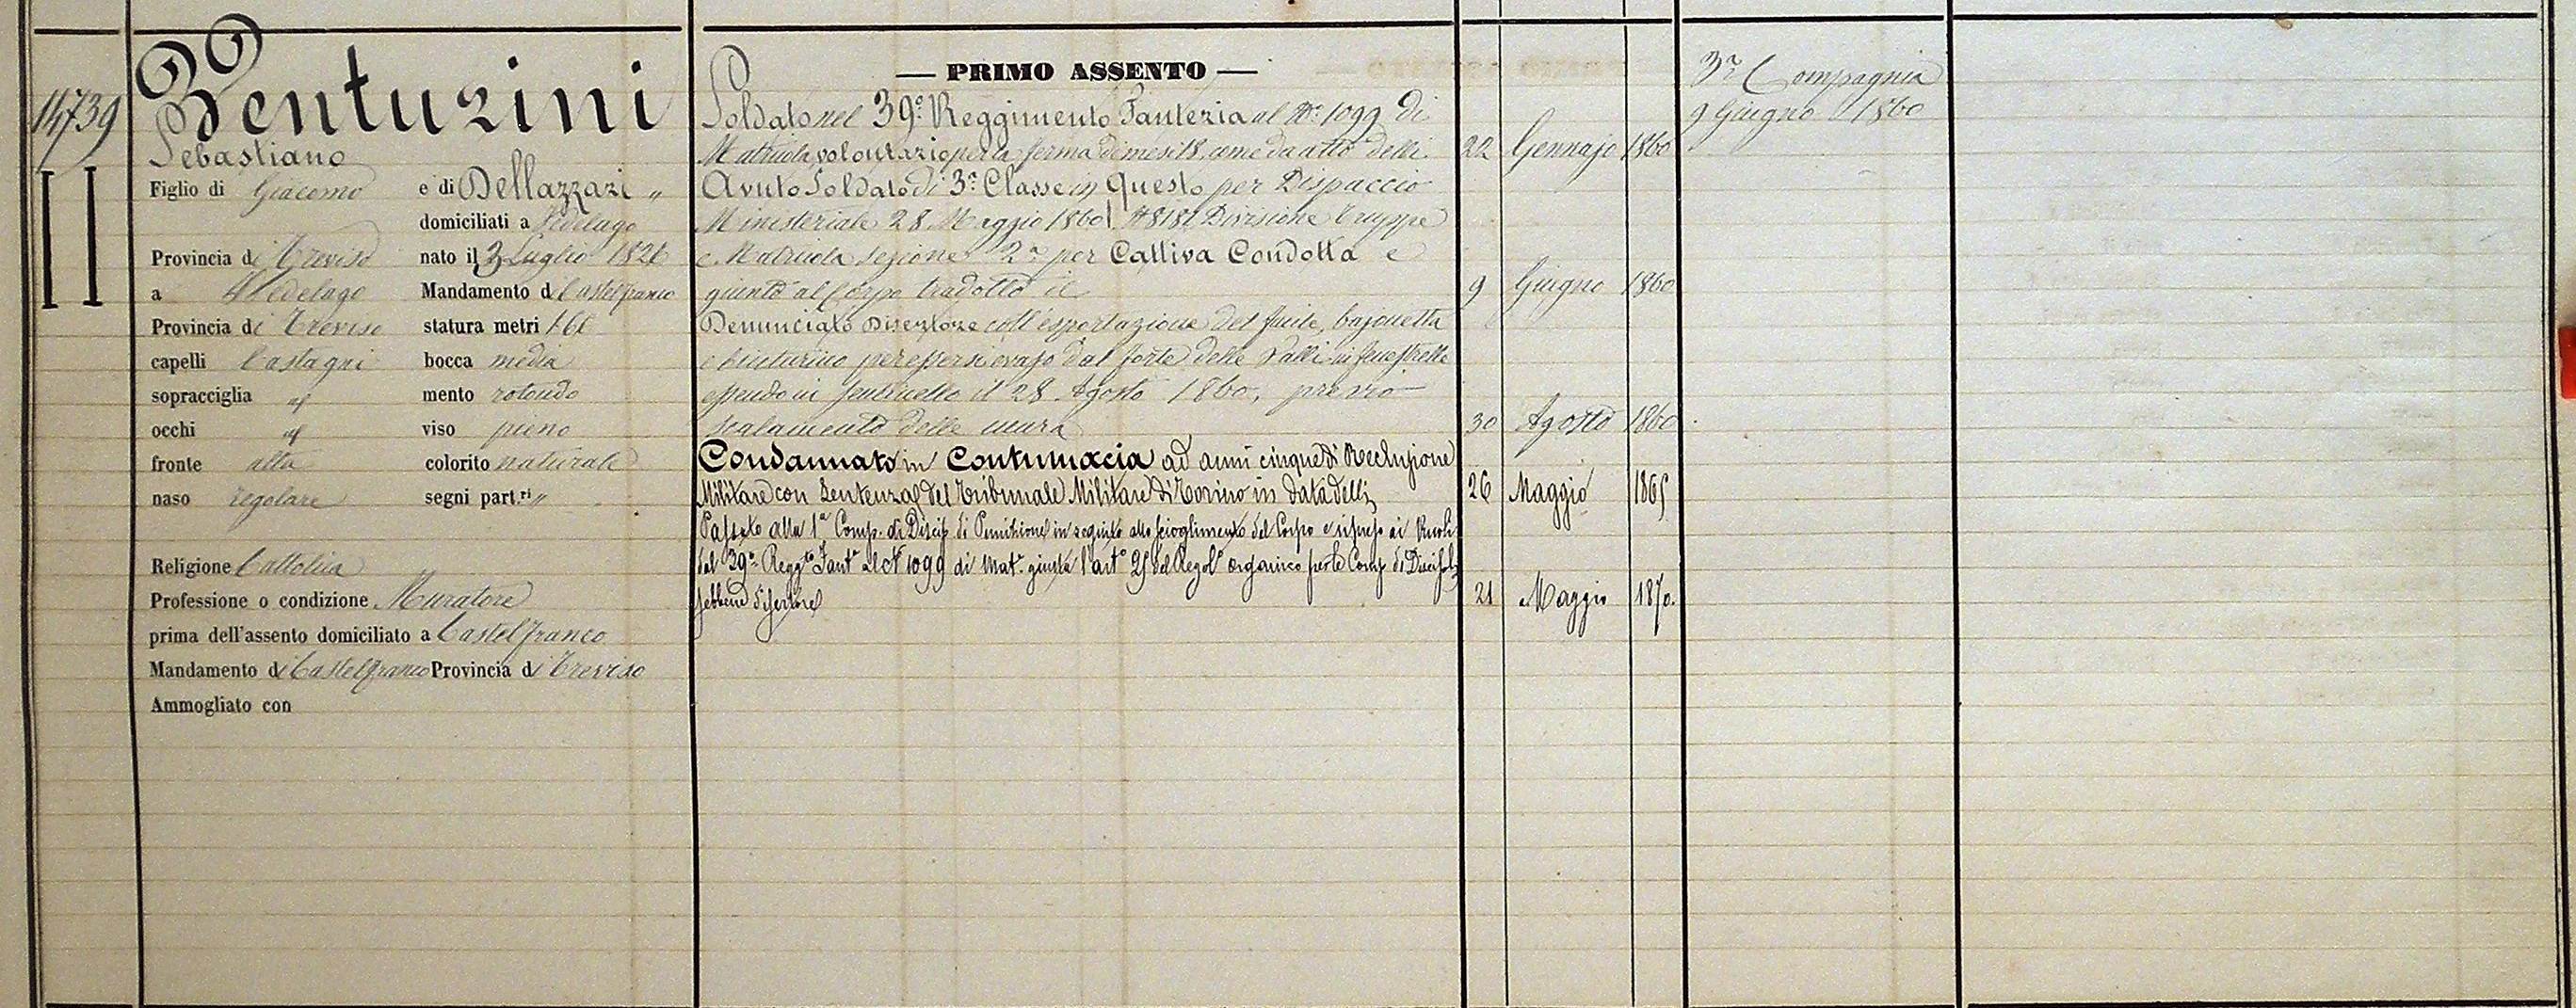 14739
Venturini
Sebastiano
Figlio di Giacomo e di Dellazzari "
domiciliati a Vedelago
Provincia di Treviso nato il 3 Luglio 1826
a Vedelago Mandamento di Castelfranco
Provincia di Treviso statura metri 1.66
capelli Castagni bocca media
sopracciglia id mento rotondo
occhi id viso pieno
fronte alta colorito naturale
naso regolare segni part.ri "
Religione Cattolica
Professione o condizione Muratore
prima dell'assento domiciliato a Castelfranco
Mandamento di Castelfranco Provincia di Treviso
Ammogliato con
— PRIMO ASSENTO —
Soldato nel 39° Reggimento Fanteria al N° 1099 di
Matricola, volontario per la ferma di mesi 18, come da atto delli 22 Gennajo 1860
Avuto Soldato di 3a Classe in questo per Dispaccio
Ministeriale 28 Maggio 1860 N 8181 Divisione Truppe
e Matricola Sezione 2a per Cattiva Condotta e
giunto al Corpo tradotto il 9 Giugno 1860
Denunciato Disertore coll'esportazione del fucile, bajonetta
e cinturino per essersi evaso dal forte delle Valli in Fenestrelle
essendo in sentinella il 28 Agosto 1860, previo
scalamento delle mura 30 Agosto 1860
Condannato in Contumacia ad anni cinque di Reclusione
Militare con Sentenza del Tribunale Militare di Torino in data delli 26 Maggio 1865
Passato alla 1a Comp. di Discip. di Punizione in seguito allo scioglimento del Corpo e ripreso ai Ruoli
dal 39° Regg.to Fant.a al N° 1099 di Mat.a giusta l'art° 25 del Regol° organico per le Comp. di Discipl.
sebbene disertore 21 Maggio 1870.
3a Compagnia
9 Giugno 1860